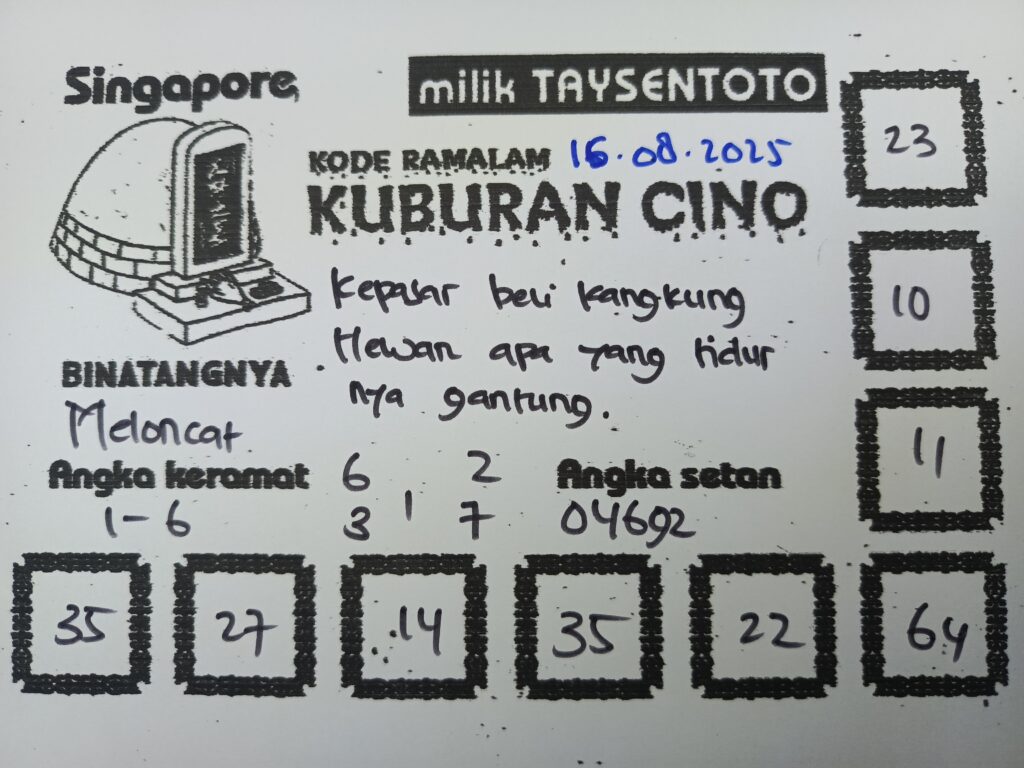 Singapore
milik TAYSENTOTO
KODE RAMALAM 16.08.2025
KUBURAN CINO
Kepasar beli kangkung
Hewan apa yang tidur
nya gantung.
BINATANGNYA
Meloncat
Angka keramat
1-6
6 2
3 1 7
Angka setan
04692
23
10
11
35 27 14 35 22 64